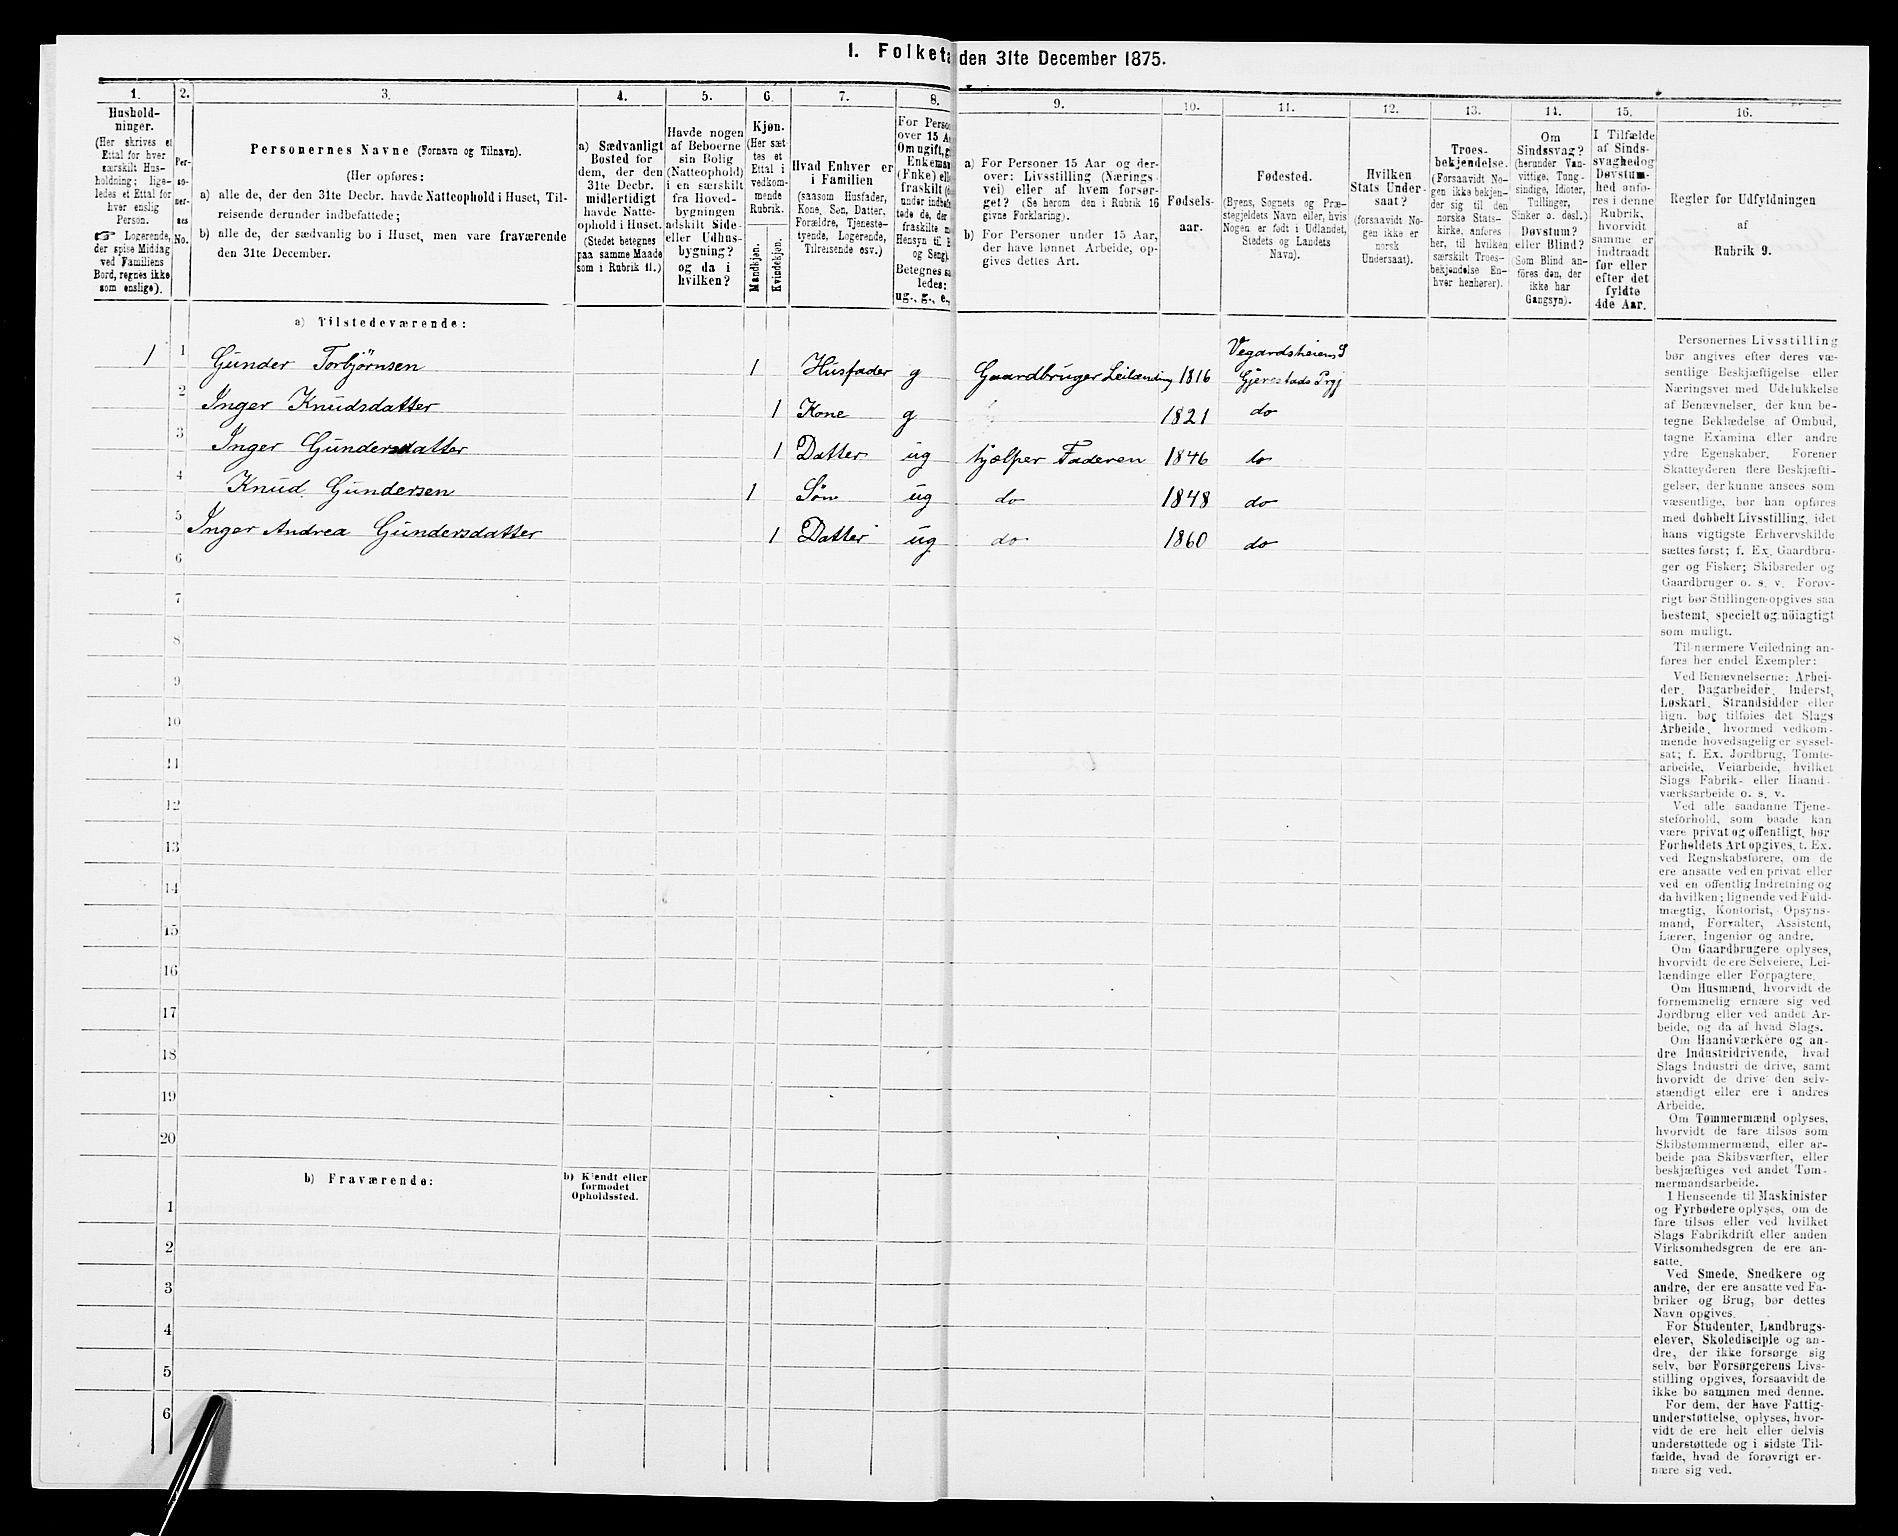 I. Folketæ den 31te December 1875.
1. 2. 3. 4. 5. 6. 7. 8. 9. 10. 11. 12. 13. 14. 15. 16.
Hushold-
ninger.
(Her skrives et
Ettal for hver
særskilt Hus-
holdning; lige-
ledes et Ettal for
hver enslig
Person.
☞ Logerende,
der spise Middag
ved Familiens
Bord, regnes ikke
som enslige).
Per-
so-
ner-
nes
No.
Personernes Navne (Fornavn og Tilnavn).
(Her opføres:
a) alle de, der den 31te Decbr. havde Natteophold i Huset, Til-
reisende derunder indbefattede;
b) alle de, der sædvanlig bo i Huset, men vare fraværende
den 31te December.
a) Sædvanligt
Bosted for
dem, der den
31te Decbr.
midlertidigt
havde Natte-
ophold i Huset.
(Stedet betegnes
paa samme Maade
som i Rubrik 11.)
Havde nogen
af Beboerne
sin Bolig
(Natteophold)
i en særskilt
fra Hoved-
bygningen
adskilt Side-
eller Udhus-
bygning?
og da i
hvilken?
Kjøn.
(Her sæt-
tes et
Ettal i
vedkom-
mende
Rubrik.
Mandkjøn.
Kvindekjøn.
Hvad Enhver er
i Familien
(saasom Husfader,
Kone, Søn, Datter,
Forældre, Tjeneste-
tyende, Logerende,
Tilreisende osv.)
For Perso
over 15 A
Om ugift, g
Enkeman
(Enke) elle
fraskilt (
under indbef
tede de, der
fraskilte m
Hensyn til B
og Seng).
Betegnes saa
ledes:
ug., g., e.,
a) For Personer 15 Aar og der-
over: Livsstilling (Nærings-
vei) eller af hvem forsør-
get? (Se herom den i Rubrik 16
givne Forklaring).
b) For Personer under 15 Aar,
der have lønnet Arbeide, op-
gives dettes Art.
Fødsels-
aar.
Fødested.
(Byens, Sognets og Præ-
stegjeldets Navn eller, hvis
Nogen er født i Udlandet,
Stedets og Landets
Navn).
Hvilken
Stats Under-
saat?
(forsaavidt No-
gen ikke er
norsk
Undersaat).
Troes-
bekjendelse.
(Forsaavidt No-
gen ikke bekjen-
der sig til den
norske Stats-
kirke, anføres
her, til hvilken
særskilt Troes-
bekjendelse En-
hver henhører).
Om
Sindssvag?
(herunder Van-
vittige, Tung-
sindige, Idioter,
Tullinger,
Sinker o. desl.)
Døvstum?
eller Blind?
(Som Blind an-
føres den, der
ikke har
Gangsyn).
I Tilfælde
af Sinds-
svaghed og
Døvstum-
hed anfø-
res i denne
Rubrik,
hvorvidt
samme er
indtraadt
før eller
efter det
fyldte
4de Aar.
Regler for Udfyldningen
af
Rubrik 9.
a) Tilstedeværende:
1 1 Gunder Torbjørnsen 1 Husfader g Gaardbruger Leilænding 1816 Vegardsheiens S Gjerestads Prgj
2 Inger Knudsdatter 1 Kone g 1821 do
3 Inger Gundersdatter 1 Datter ug hjælper Faderen 1846 do
4 Knud Gundersen 1 Søn ug do 1848 do
5 Inger Andrea Gundersdatter 1 Datter ug do 1860 do
6
7
8
9
10
11
12
13
14
15
16
17
18
19
20
b) Fraværende:
b) Kjendt eller
formodet
Opholdssted.
1
2
3
4
5
6
Personernes Livsstilling
bør angives efter deres væ-
sentlige Beskjæftigelse eller
Næringsvei med Udelukkelse
af Benævnelser, der kun be-
tegne Beklædelse af Ombud,
tagne Examina eller andre
ydre Egenskaber. Forener
Skatteyderen flere Beskjæfti-
gelser, der kunne ansees som
væsentlige, bør han opføres
med dobbelt Livsstilling, idet
hans vigtigste Erhvervskilde
sættes først; f. Ex. Gaardbru-
ger og Fisker; Skibsreder og
Gaardbruger o. s. v. Forøv-
rigt bør Stillingen opgives saa
bestemt, specielt og nöiagtigt
som muligt.
Til nærmere Veiledning an-
føres her endel Exempler:
Ved Benævnelserne: Arbei-
der, Dagarbeider, Inderst,
Løskarl, Strandsidder eller
lign. bør tilføies det Slags
Arbeide, hvormed vedkom-
mende hovedsagelig er syssel-
sat; f. Ex. Jordbrug, Tomte-
arbeide, Veiarbeide, hvilket
Slags Fabrik- eller Haand-
værksarbeide o. s. v.
Ved alle saadanne Tjene-
steforhold, som baade kan
være privat og offentligt, bør
Forholdets Art opgives, f. Ex.
ved Regnskabsførere, om de
ere ansatte ved en privat eller
ved en offentlig Indretning og
da hvilken; lignende ved Fuld-
mægtig, Kontorist, Opsyns-
mand, Forvalter, Assistent,
Lærer, Ingeniør og andre.
Om Gaardbrugere oplyses,
hvorvidt de ere Selveiere, Lei-
lændinge eller Forpagtere.
Om Husmænd, hvorvidt de
fornemmelig ernære sig ved
Jordbrug eller ved andet Ar-
beide, og da af hvad Slags.
Om Haandværkere og an-
dre Industridrivende, hvad
Slags Industri de drive, samt
hvorvidt de drive den selv-
stændigt eller ere i andres
Arbeide.
Om Tømmermænd oplyses,
hvorvidt de fare tilsøs som
Skibstømmermænd, eller ar-
beide paa Skibsværfter, eller
beskjæftiges ved andet Tøm-
mermandsarbeide.
I Henseende til Maskinister
og Fyrbødere oplyses, om de
fare tilsøs eller ved hvilket
Slags Fabrikdrift eller anden
Virksomhedsgren de ere an-
satte.
Ved Smede, Snedkere og
andre, der ere ansatte ved Fa-
briker og Brug, bør dettes
Navn opgives.
For Studenter, Landbrugs-
elever, Skoledisciple og an-
dre, der ikke forsørge sig
selv, bør Forsørgerens Livs-
stilling opgives, forsaavidt de
ikke bo sammen med denne.
For dem, der have Fattig-
understøttelse, oplyses, hvor-
vidt de ere helt eller delvis
understøttede og i sidste Til-
fælde, hvad de forøvrigt er-
nære sig ved.